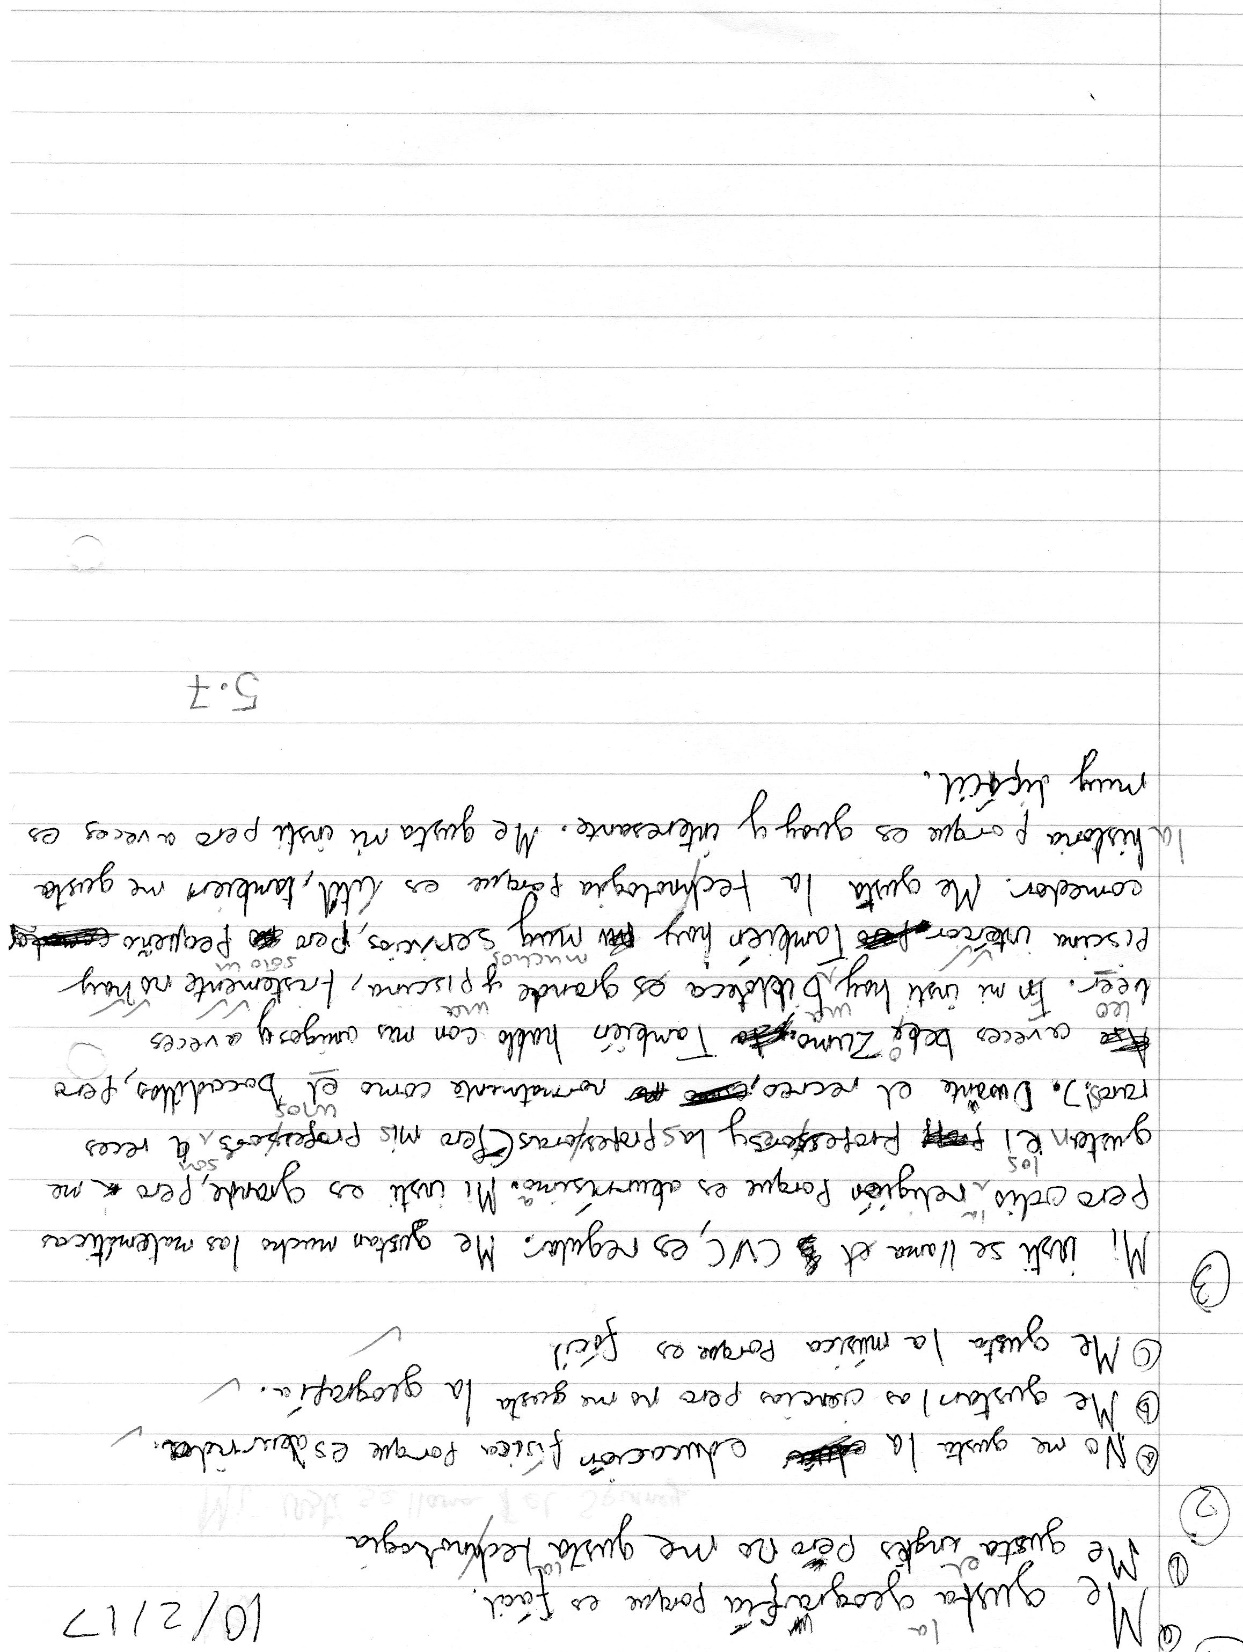 10/2/17
ⓐ Me gusta la geografía porque es fácil.
ⓑ Me gusta el inglés pero no me gusta la technología
②
ⓐ No me gusta la educación física porque es aburrida.
ⓑ Me gustan las ciencias pero no me gusta la geografía.
ⓒ Me gusta la música porque es fácil
③ Mi insti se llama el CVC, es regular. Me gustan mucho las matemáticas
pero odio la religión porque es aburrísimo. Mi insti es grande, pero me
los son
gustan el professores y las professoras (Pero mis professors, a veces
unos
raros). Durante el recreo, normalmente como el bocadillos, pero
a veces bebe zumo. También hablo con mis amigos y a veces
leo
leer. En mi insti hay, biblioteca es grande y piscina, tristemente no hay
muchos solo un
piscina interior. También hay muy servicios, pero pequeño
comedor. Me gusta la technologia porque es útil, tambien me gusta
la historia porque es guay y interesante. Me gusta mi insti pero a veces es
muy difícil.
5.7